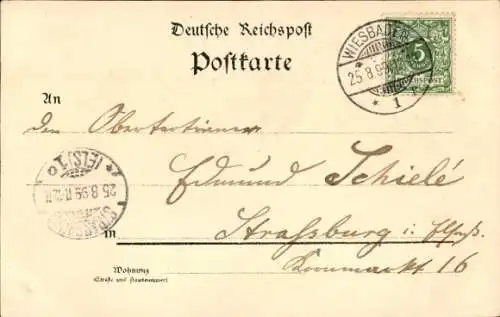 Deutsche Reichspost
Postkarte
WIESBADEN
25.8.99
* 1 *
5
REICHSPOST
An
den Obertertianer
Edmund Schielé
(ELS.) 1
25.8.99
STRASSBURG
in Straßburg i. Elsaß.
Wohnung
(Straße und Hausnummer)
Kornmarkt 16